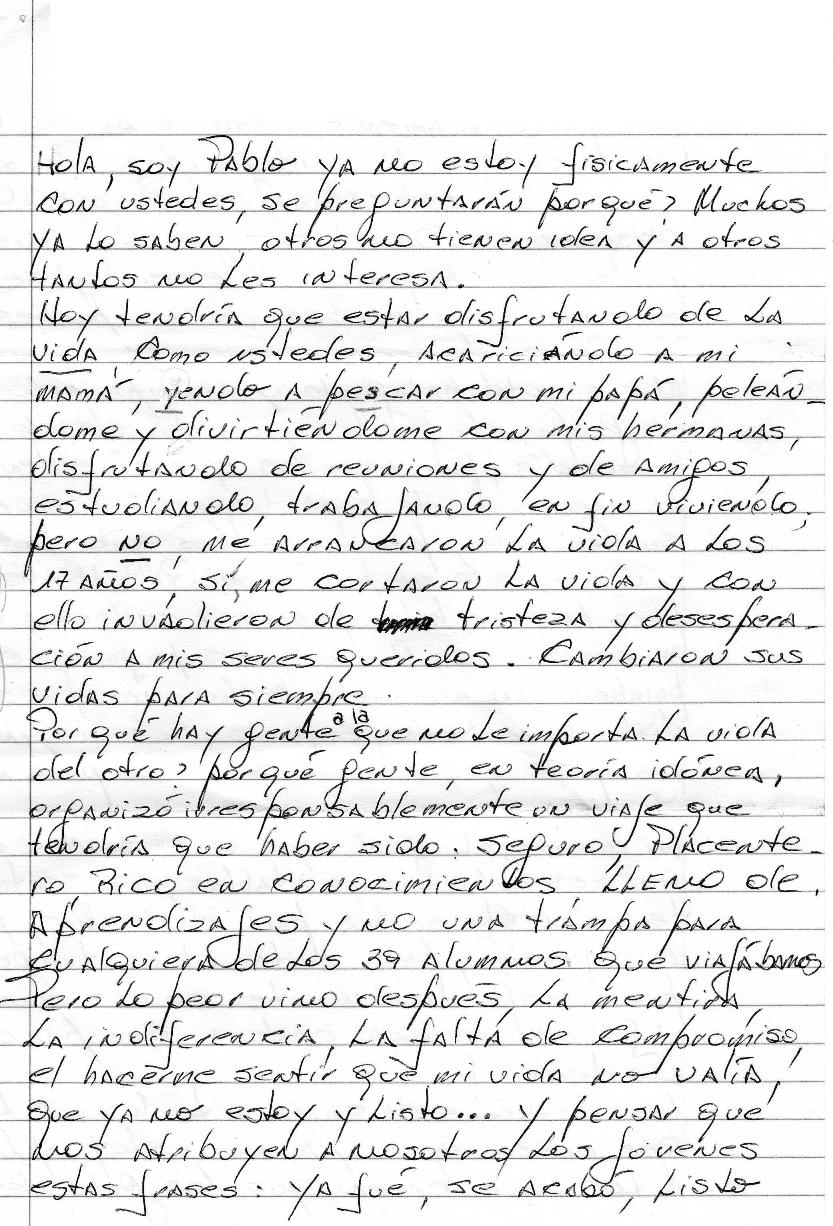 Hola, soy Pablo ya no estoy fisicamente
con ustedes, se preguntarán porqué? Muchos
ya lo saben, otros no tienen idea y a otros
tantos no les interesa.
Hoy tendría que estar disfrutando de la
vida, como ustedes, acariciando a mi
mamá, yendo a pescar con mi papá, peleán_
dome y divirtiéndome con mis hermanas,
disfrutando de reuniones y de amigos,
estudiando, trabajando, en fin viviendo,
pero no, me arrancaron la vida a los
17 años, si, me cortaron la vida y con
ello invadieron de tristeza y desespera_
ción a mis seres queridos. Cambiaron sus
vidas para siempre.
Por qué hay gente a la que no le importa la vida
del otro? porqué gente, en teoría idónea,
organizó irresponsablemente un viaje que
tendría que haber sido: Seguro, Placente_
ro Rico en conocimientos LLENO de
Aprendizajes y no una trampa para
cualquiera de los 39 alumnos que viajábamos
Pero lo peor vino después, la mentira,
la indiferencia, la falta de compromiso,
el hacerme sentir que mi vida no valía,
que ya no estoy y listo... y pensar que
nos atribuyen a nosotros los jóvenes
estas frases: ya fué, se acabó, listo